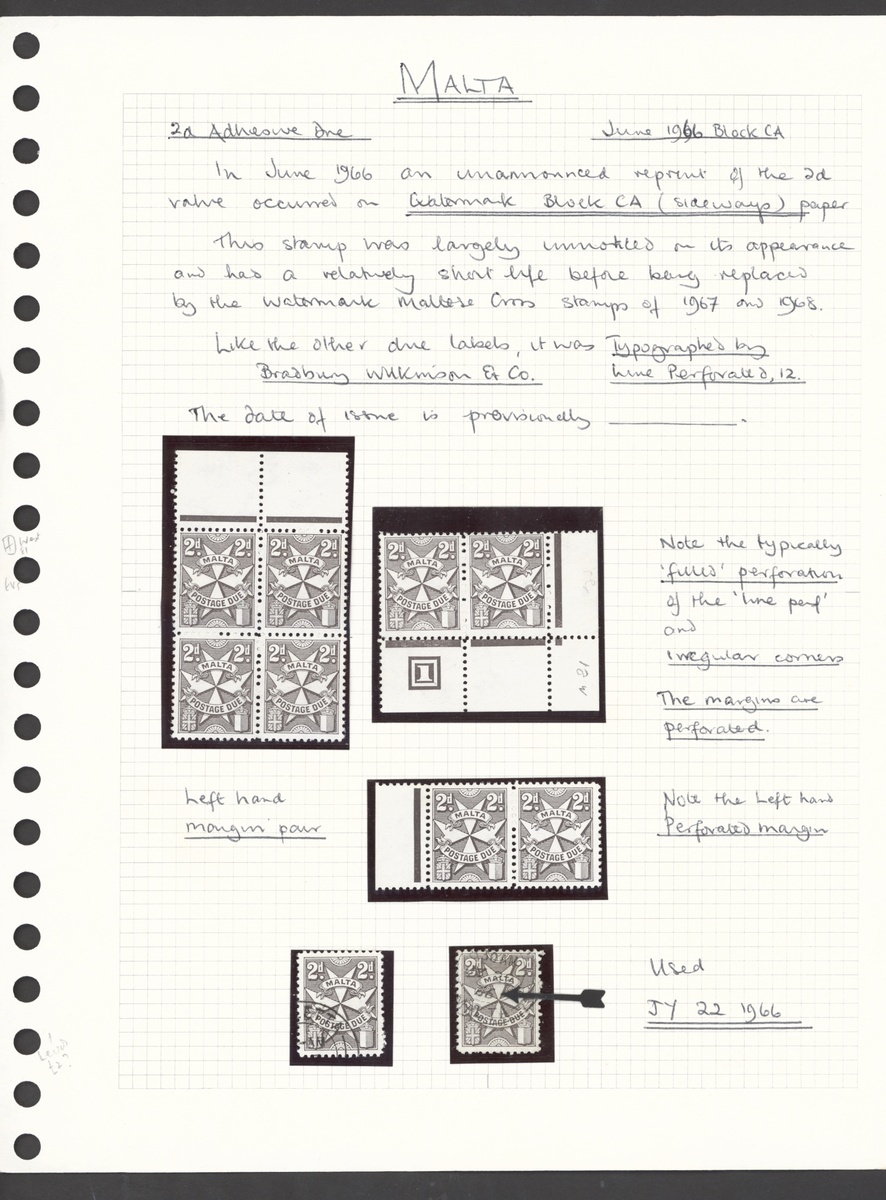 MALTA
2d Adhesive Due
June 1966 Block CA
In June 1966 an unannounced reprint of the 2d
value occurred on Watermark Block CA (sideways) paper
This stamp was largely unnoticed on its appearance
and had a relatively short life before being replaced
by the Watermark Maltese Cross stamps of 1967 and 1968.
Like the other due labels, it was Typographed by
Bradbury Wilkinson & Co. Line Perforated, 12.
The date of issue is provisionally ________.
2d 2d 2d 2d
MALTA MALTA
POSTAGE DUE POSTAGE DUE
2d 2d 2d 2d
MALTA MALTA
POSTAGE DUE POSTAGE DUE
2d 2d 2d 2d
MALTA MALTA
POSTAGE DUE POSTAGE DUE
1
Note the typically
'filled' perforation
of the 'line perf'
and
irregular corners
The margins are
perforated.
Left hand
margin pair
2d 2d 2d 2d
MALTA MALTA
POSTAGE DUE POSTAGE DUE
Note the Left hand
Perforated margin
2d 2d
MALTA
POSTAGE DUE
2d 2d
MALTA
POSTAGE DUE
Used
JY 22 1966